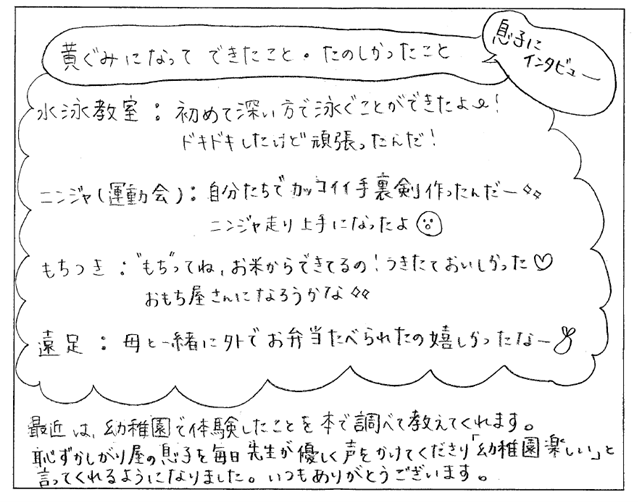 黄ぐみになって できたこと・たのしかったこと
息子に
インタビュー
水泳教室：初めて深い方で泳ぐことができたよ!
ドキドキしたけど頑張ったんだ!
ニンジャ(運動会)：自分たちでカッコイイ手裏剣作ったんだー
ニンジャ走り上手になったよ
もちつき："もち"ってね、お米からできてるの!うきたておいしかった♡
おもち屋さんになろうかな
遠足：母と一緒に外でお弁当たべられたの嬉しかったなー
最近は、幼稚園で体験したことを本で調べて教えてくれます。
恥ずかしがり屋の息子を毎日先生が優しく声をかけてくださり「幼稚園楽しい」と
言ってくれるようになりました。いつもありがとうございます。